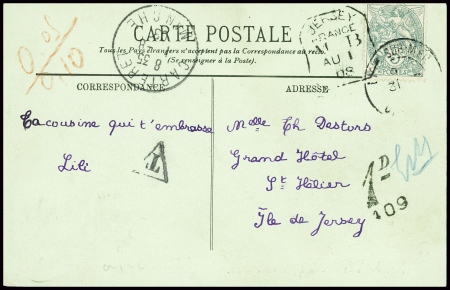 CARTE POSTALE
Tous les Pays étrangers n'acceptent pas la Correspondance au recto.
(Se renseigner à la Poste).
CORRESPONDANCE
ADRESSE
Ta cousine qui t'embrasse
Lili
Melle Th Destors
Grand Hôtel
St Hélier
Île de Jersey
JERSEY
FRANCE
AU 1
05
CARTERET
MANCHE
AL
D
109
0/0
0,10